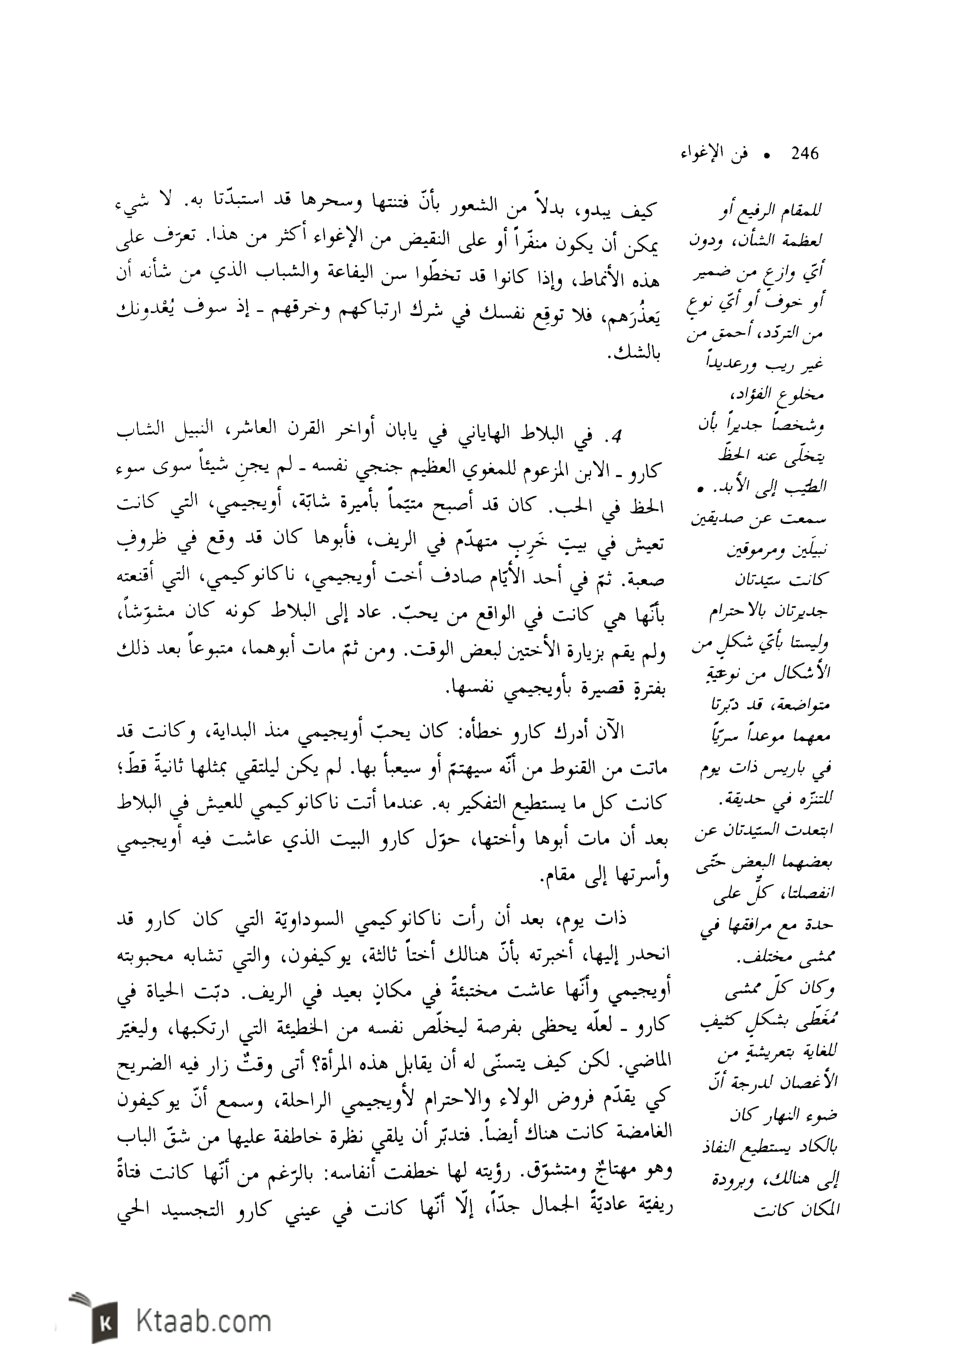 246 • فن الإغواء
كيف يبدو، بدلاً من الشعور بأنّ فتنتها وسحرها قد استبدّتا به. لا شيء
يمكن أن يكون منفّراً أو على النقيض من الإغواء أكثر من هذا. تعرّف على
هذه الأنماط، وإذا كانوا قد تخطّوا سن اليفاعة والشباب الذي من شأنه أن
يَعذُرَهم، فلا توقِع نفسك في شرك ارتباكهم وخرقهم ـ إذ سوف يُعْدونك
بالشك.
4. في البلاط الهاياني في يابان أواخر القرن العاشر، النبيل الشاب
كارو ـ الابن المزعوم للمغوي العظيم جنجي نفسه ـ لم يجنِ شيئاً سوى سوء
الحظ في الحب. كان قد أصبح متيّماً بأميرة شابّة، أويجيمي، التي كانت
تعيش في بيتٍ خَرِبٍ متهدّم في الريف، فأبوها كان قد وقع في ظروفٍ
صعبة. ثمّ في أحد الأيّام صادف أخت أويجيمي، ناكانوكيمي، التي أقنعته
بأنّها هي كانت في الواقع من يحبّ. عاد إلى البلاط كونه كان مشوّشاً،
ولم يقم بزيارة الأختين لبعض الوقت. ومن ثمّ مات أبوهما، متبوعاً بعد ذلك
بفترةٍ قصيرة بأويجيمي نفسها.
الآن أدرك كارو خطأه: كان يحبّ أويجيمي منذ البداية، وكانت قد
ماتت من القنوط من أنّه سيهتمّ أو سيعبأ بها. لم يكن ليلتقي بمثلها ثانيةً قطّ؛
كانت كل ما يستطيع التفكير به. عندما أتت ناكانوكيمي للعيش في البلاط
بعد أن مات أبوها وأختها، حوّل كارو البيت الذي عاشت فيه أويجيمي
وأسرتها إلى مقام.
ذات يوم، بعد أن رأت ناكانوكيمي السوداويّة التي كان كارو قد
انحدر إليها، أخبرته بأنّ هنالك أختاً ثالثة، يوكيفون، والتي تشابه محبوبته
أويجيمي وأنّها عاشت مختبئةً في مكانٍ بعيد في الريف. دبّت الحياة في
كارو ـ لعلّه يحظى بفرصة ليخلّص نفسه من الخطيئة التي ارتكبها، وليغيّر
الماضي. لكن كيف يتسنّى له أن يقابل هذه المرأة؟ أتى وقتٌ زار فيه الضريح
كي يقدّم فروض الولاء والاحترام لأويجيمي الراحلة، وسمع أنّ يوكيفون
الغامضة كانت هناك أيضاً. فتدبّر أن يلقي نظرة خاطفة عليها من شقّ الباب
وهو مهتاجٌ ومتشوّق. رؤيته لها خطفت أنفاسه: بالرّغم من أنّها كانت فتاةً
ريفيّة عاديّةً الجمال جدّاً، إلّا أنّها كانت في عيني كارو التجسيد الحي
للمقام الرفيع أو
لعظمة الشأن، ودون
أيّ وازعٍ من ضمير
أو خوف أو أيّ نوعٍ
من التردّد، أحمق من
غير ريب ورعديداً
مخلوع الفؤاد،
وشخصاً جديراً بأن
يتخلّى عنه الحظّ
الطيّب إلى الأبد. •
سمعت عن صديقين
نبيلَين ومرموقين
كانت سيّدتان
جديرتان بالاحترام
وليستا بأيّ شكلٍ من
الأشكال من نوعيّةٍ
متواضعة، قد دبّرتا
معهما موعداً سريّاً
في باريس ذات يوم
للتنزّه في حديقة.
ابتعدت السيّدتان عن
بعضهما البعض حتّى
انفصلتا، كلٌّ على
حدة مع مرافقها في
ممشى مختلف.
وكان كلّ ممشى
مُغَطّى بشكلٍ كثيفٍ
للغاية بتعريشةٍ من
الأغصان لدرجة أنّ
ضوء النهار كان
بالكاد يستطيع النفاذ
إلى هنالك، وبرودة
المكان كانت
Ktaab.com